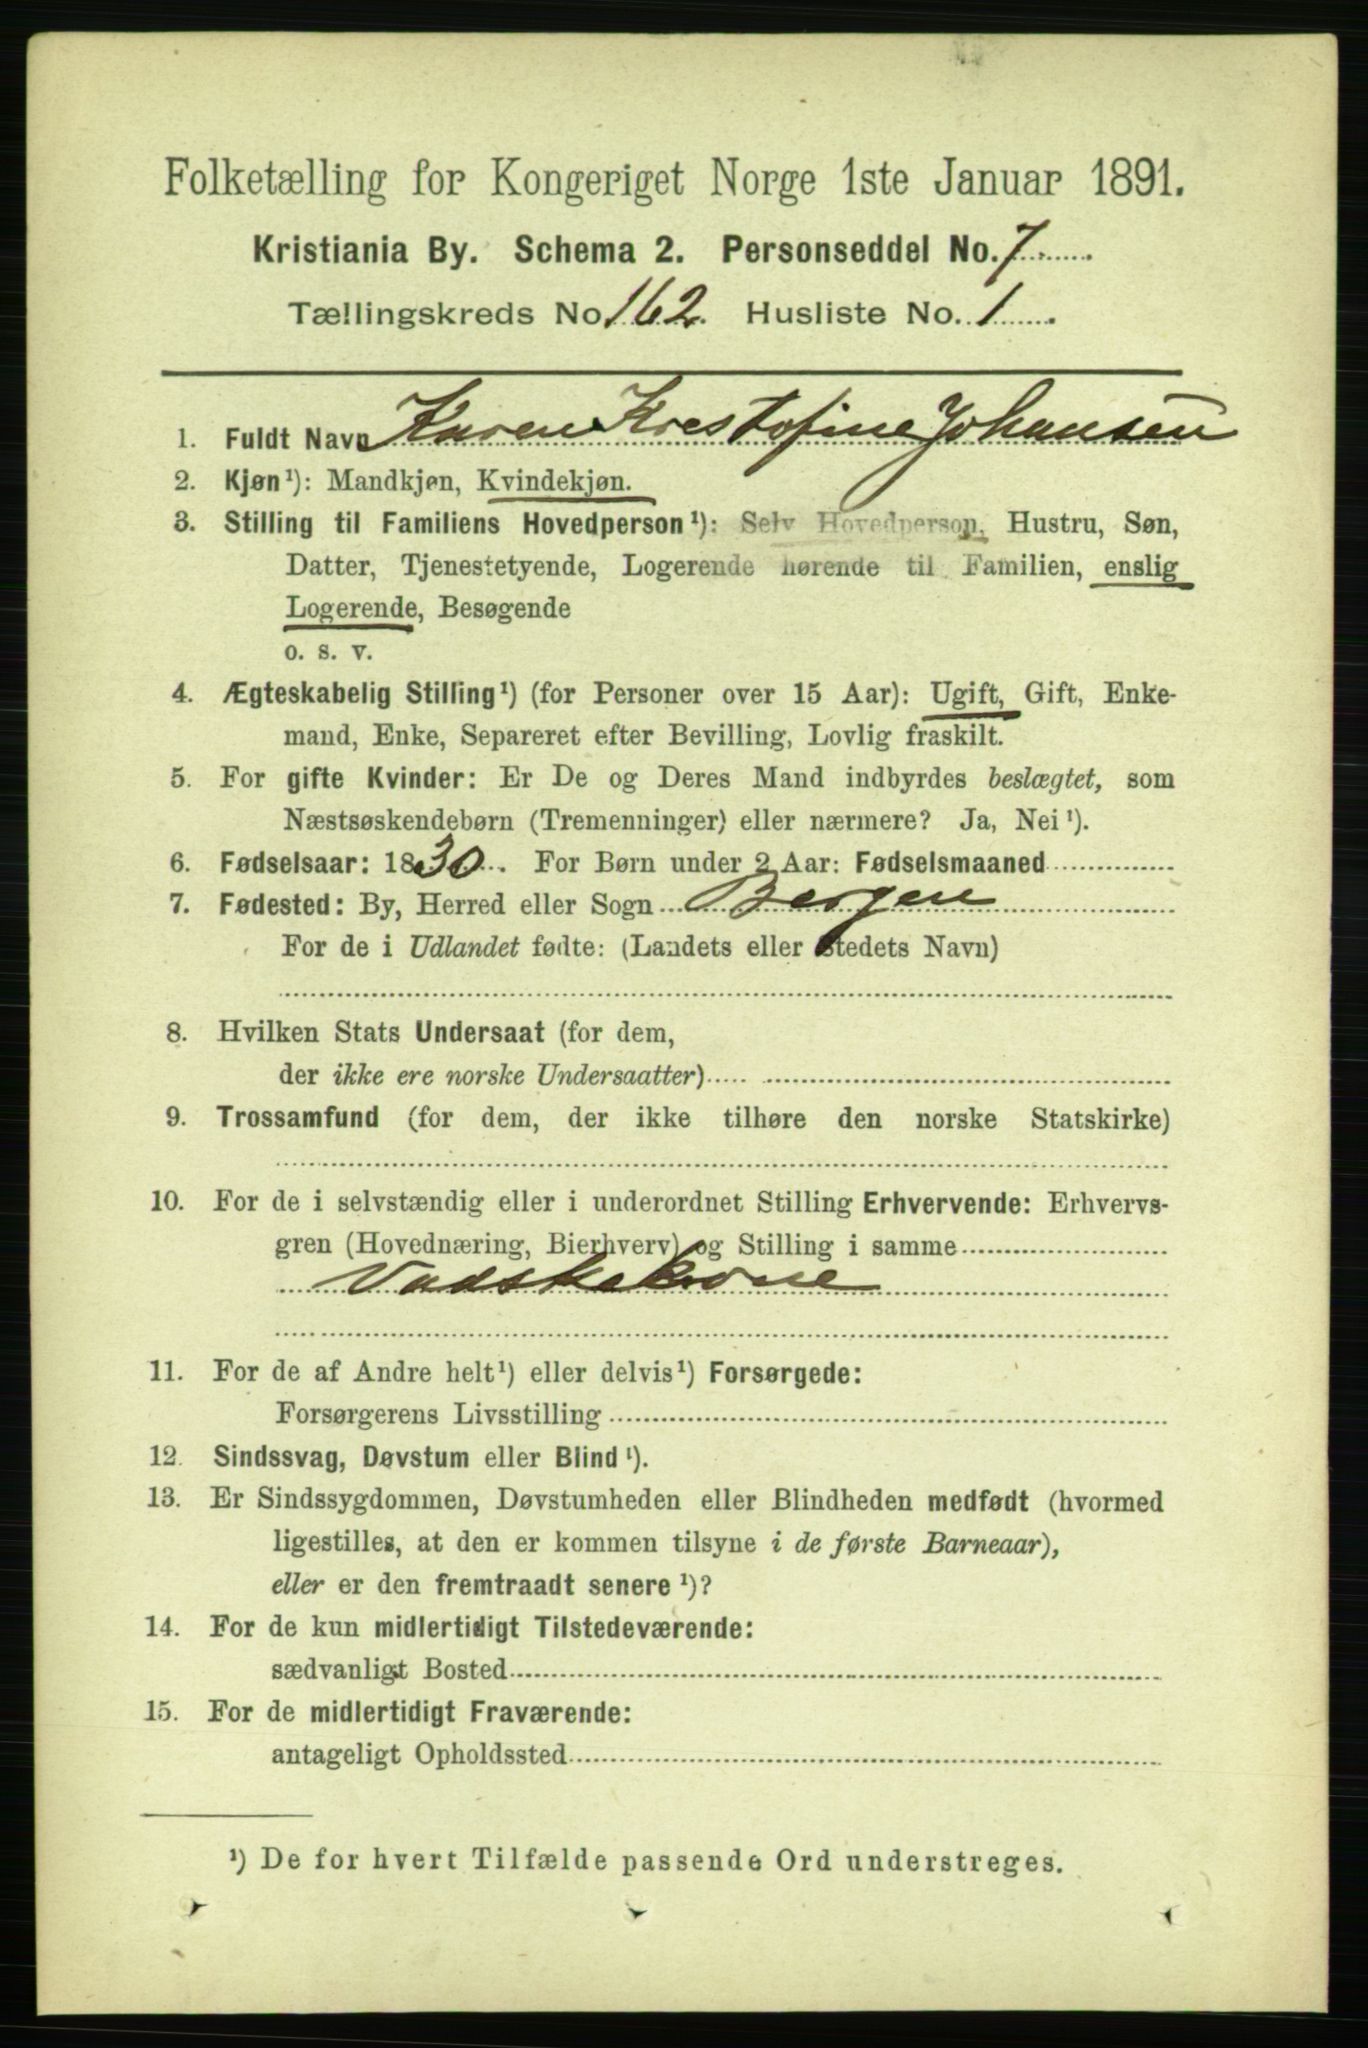 Folketælling for Kongeriget Norge 1ste Januar 1891.
Kristiania By. Schema 2. Personseddel No. 7
Tællingskreds No 162. Husliste No. 1
1. Fuldt Navn Karen Krestofine Johansen
2. Kjøn¹): Mandkjøn, Kvindekjøn.
3. Stilling til Familiens Hovedperson¹): Selv Hovedperson, Hustru, Søn,
Datter, Tjenestetyende, Logerende hørende til Familien, enslig
Logerende, Besøgende
o. s. v.
4. Ægteskabelig Stilling¹) (for Personer over 15 Aar): Ugift, Gift, Enke-
mand, Enke, Separeret efter Bevilling, Lovlig fraskilt.
5. For gifte Kvinder: Er De og Deres Mand indbyrdes beslægtet, som
Næstsøskendebørn (Tremenninger) eller nærmere? Ja, Nei¹).
6. Fødselsaar: 1830. For Børn under 2 Aar: Fødselsmaaned
7. Fødested: By, Herred eller Sogn Bergen
For de i Udlandet fødte: (Landets eller Stedets Navn)
8. Hvilken Stats Undersaat (for dem,
der ikke ere norske Undersaatter)
9. Trossamfund (for dem, der ikke tilhøre den norske Statskirke)
10. For de i selvstændig eller i underordnet Stilling Erhvervende: Erhvervs-
gren (Hovednæring, Bierhverv) og Stilling i samme
Vadskekone
11. For de af Andre helt¹) eller delvis¹) Forsørgede:
Forsørgerens Livsstilling
12. Sindssvag, Døvstum eller Blind¹).
13. Er Sindssygdommen, Døvstumheden eller Blindheden medfødt (hvormed
ligestilles, at den er kommen tilsyne i de første Barneaar),
eller er den fremtraadt senere¹)?
14. For de kun midlertidigt Tilstedeværende:
sædvanligt Bosted
15. For de midlertidigt Fraværende:
antageligt Opholdssted
¹) De for hvert Tilfælde passende Ord understreges.